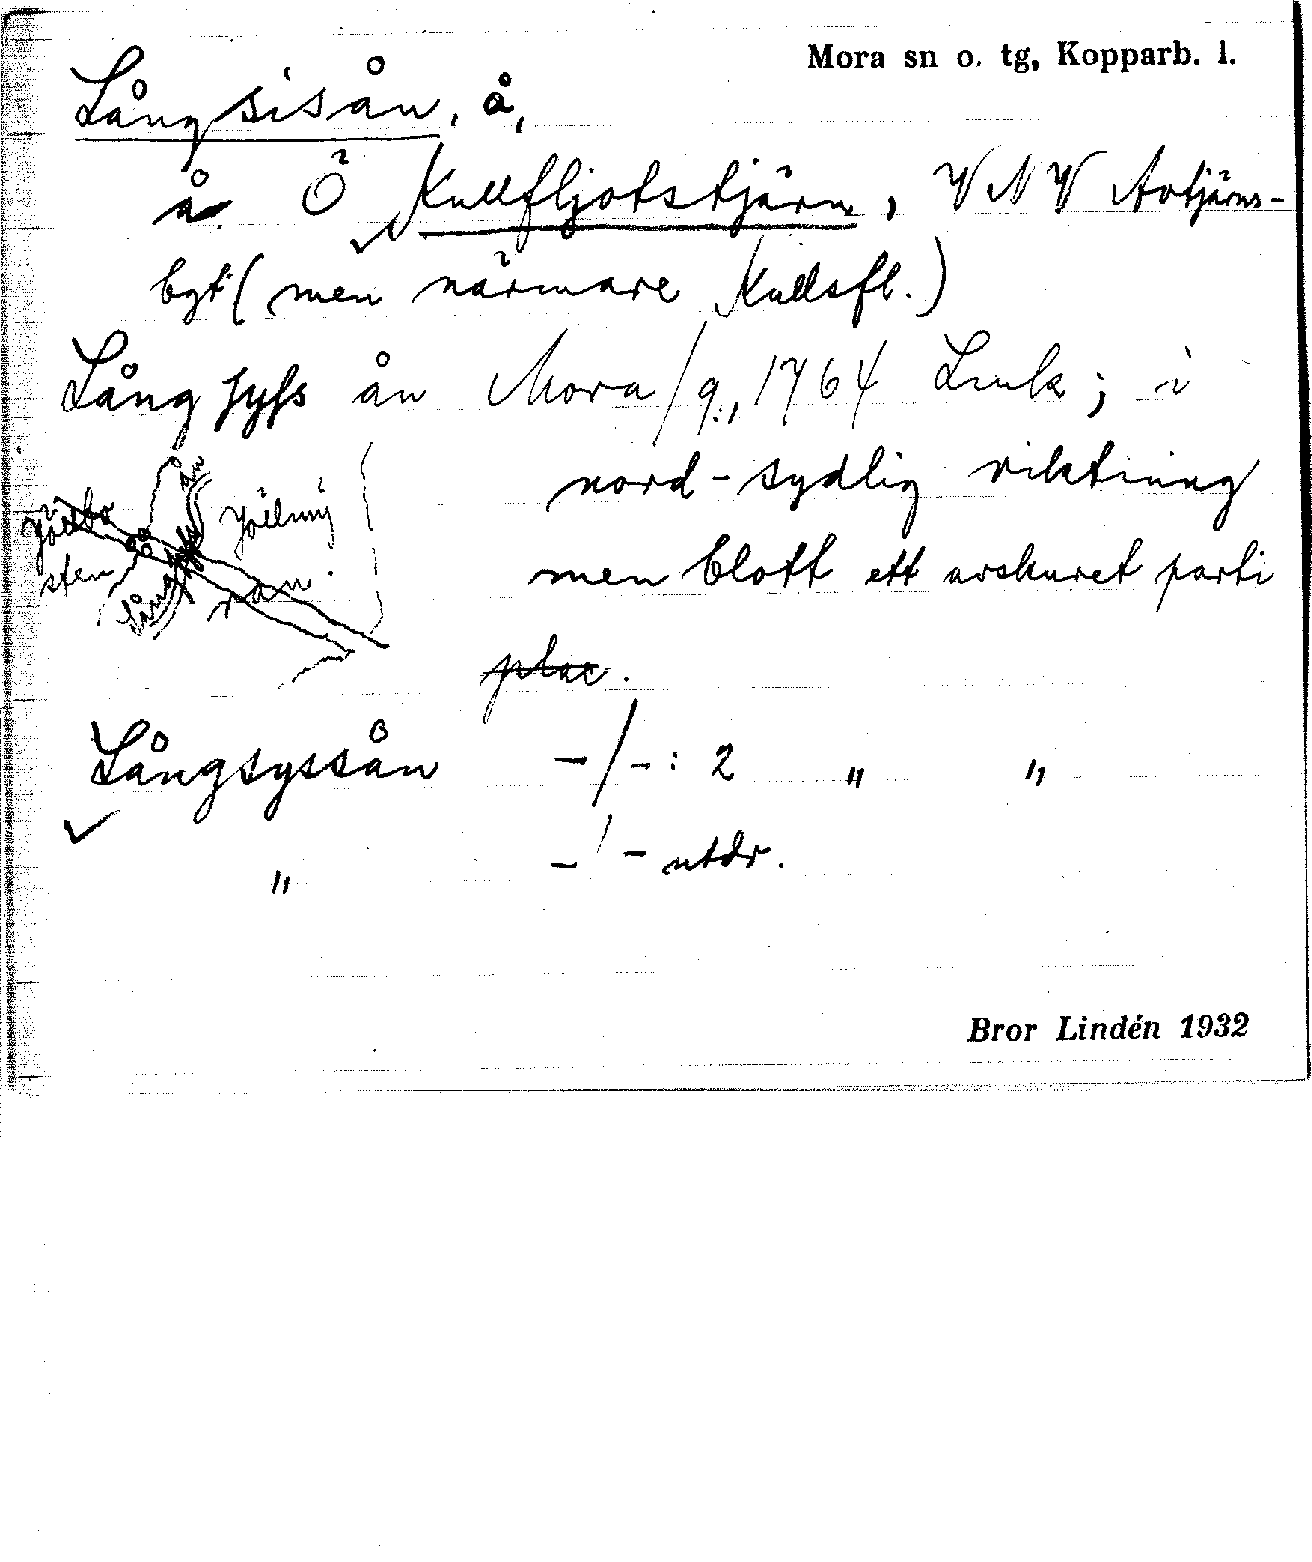 Mora sn o. tg, Kopparb. l.
Långsisån, å,
å. Ö Kullfljotstjärn, VNV Avtjärns-
byt (men närmare Kullsfl.)
Långsyss ån Mora/9., 1764 Link; i
nord-sydlig riktning
men blott ett avskuret parti
Långsyssån -/-: 2 " "
" -/- utdr.
Bror Lindén 1932